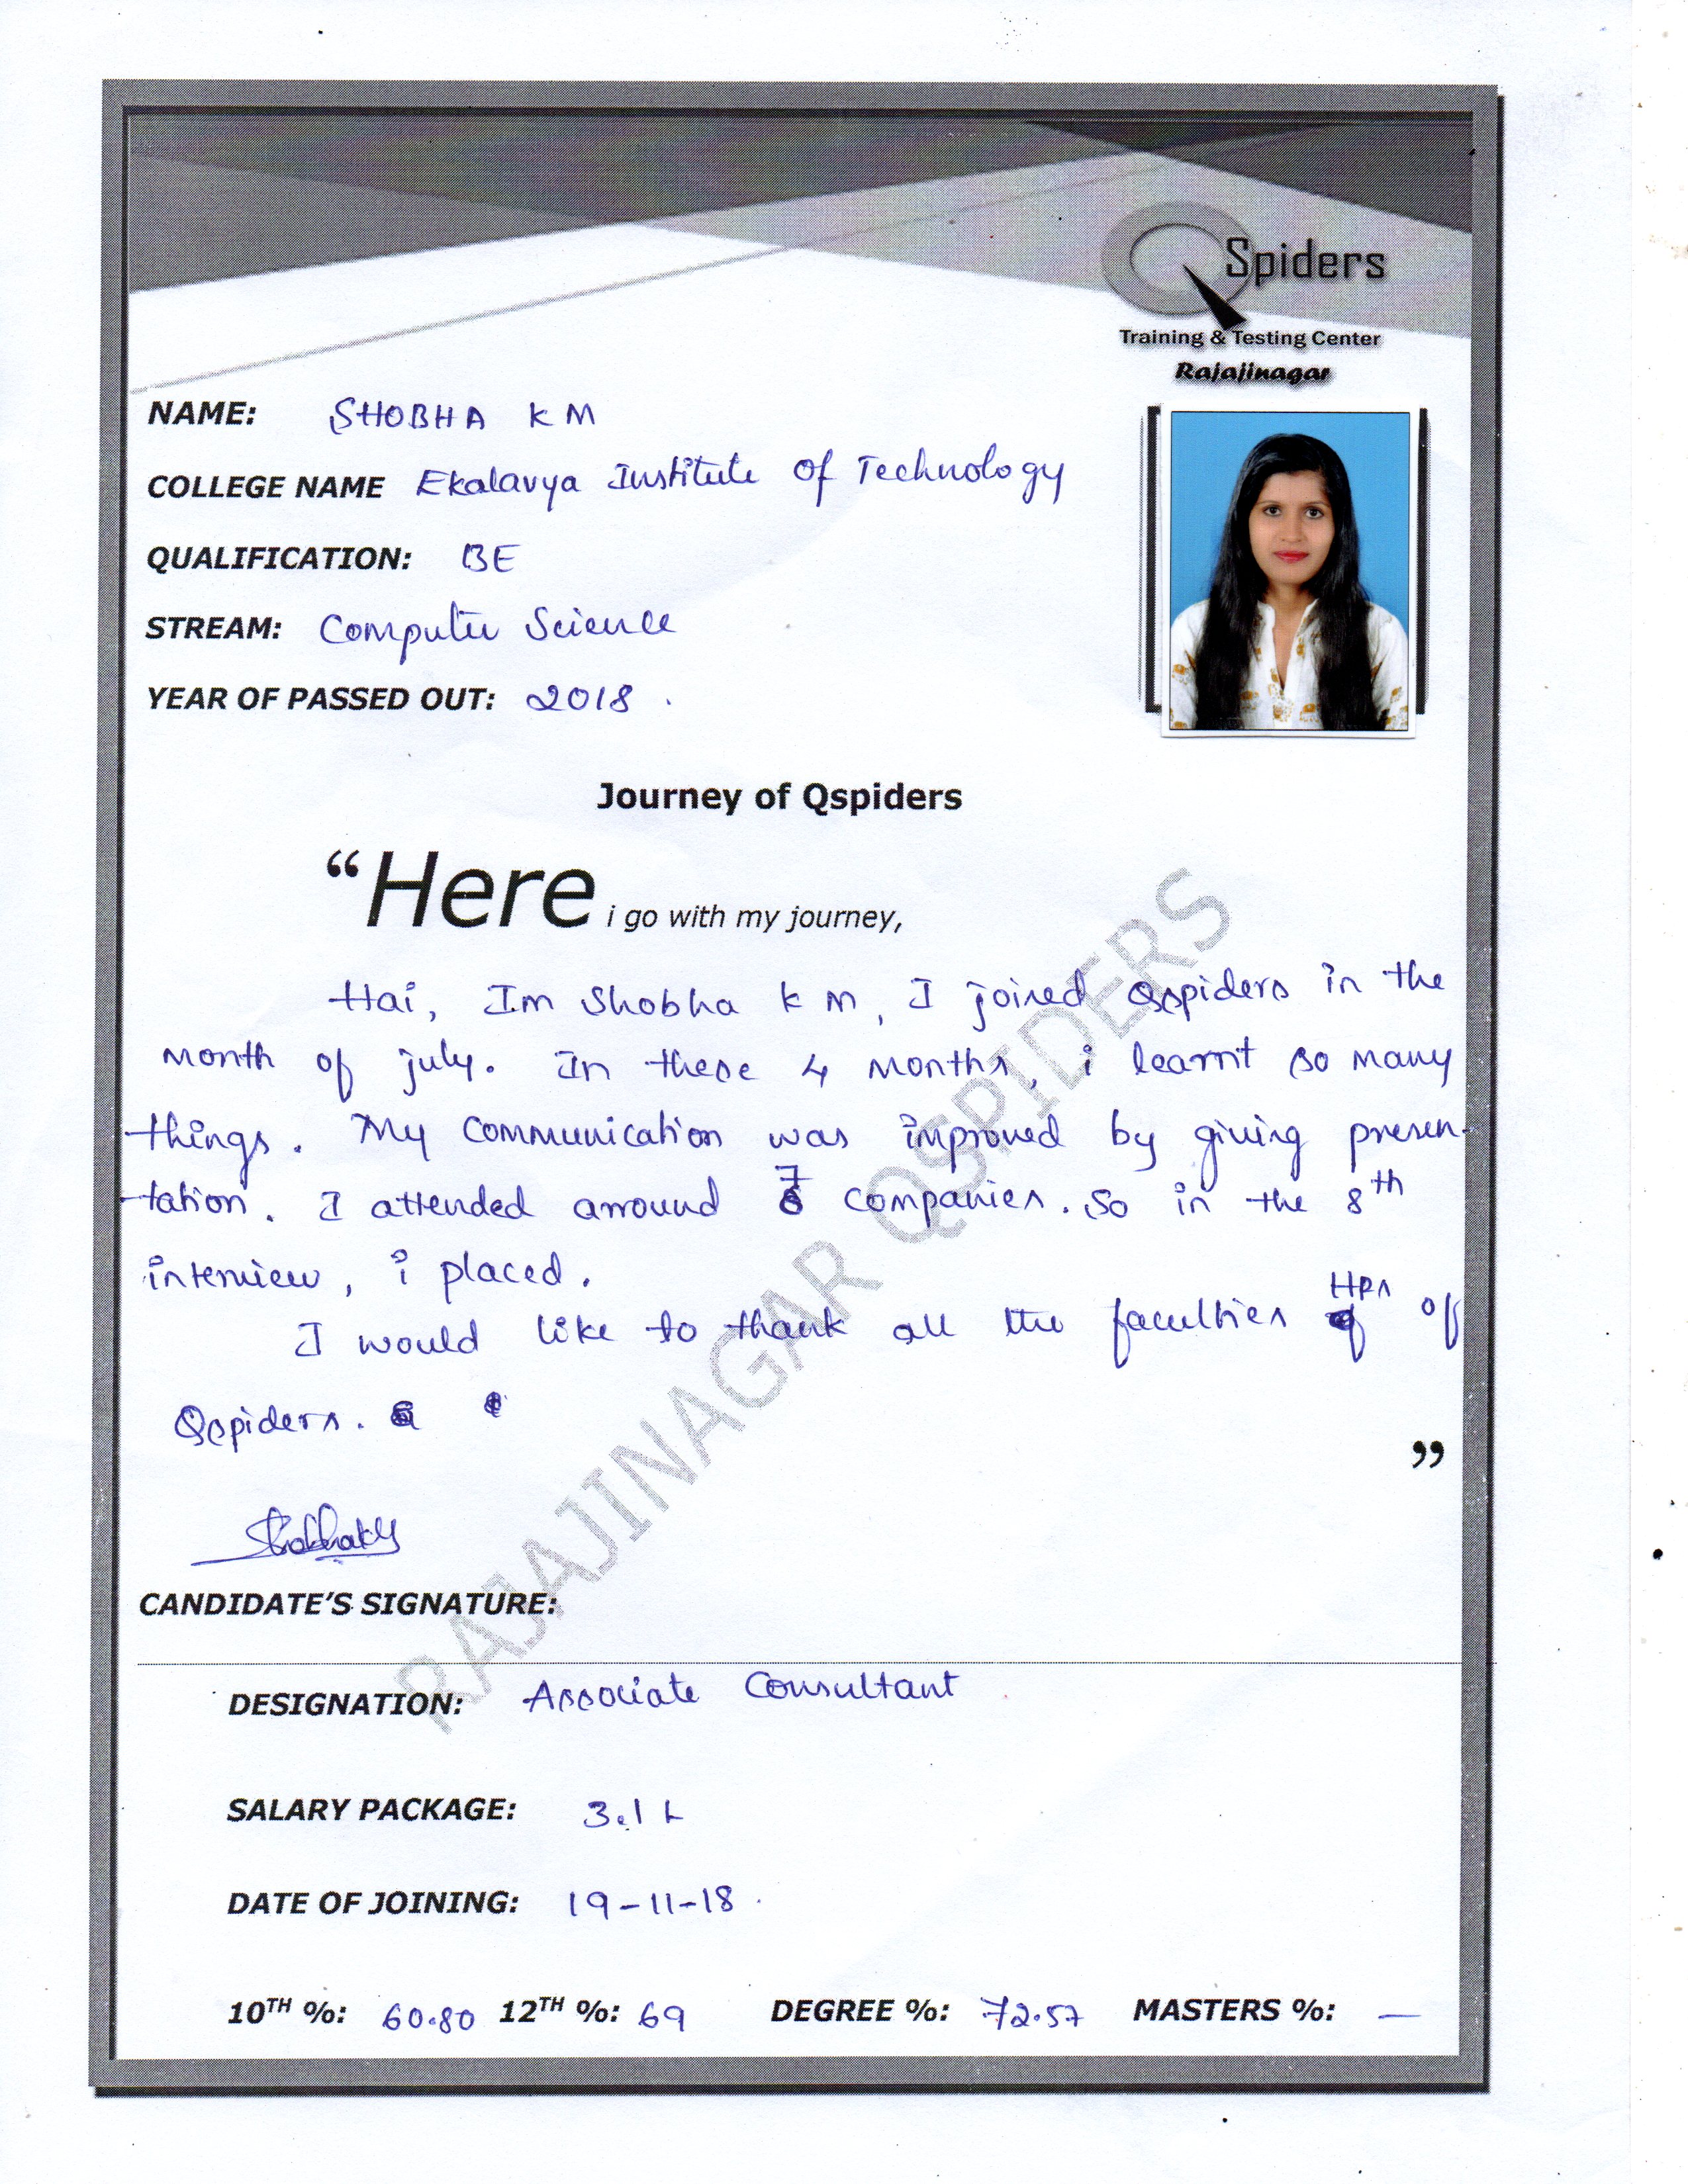 QSpiders
Training & Testing Center
Rajajinagar
NAME: SHOBHA K M
COLLEGE NAME Ekalavya Institute of Technology
QUALIFICATION: BE
STREAM: Computer Science
YEAR OF PASSED OUT: 2018.
Journey of Qspiders
“Here i go with my journey,
Hai, Im Shobha k m, I joined Qspiders in the
month of july. In these 4 months, i learnt so many
things. My communication was improved by giving presen-
-tation. I attended arround 7 companies. So in the 8th
interview, i placed.
I would like to thank all the faculties HRs of
Qspiders.
”
Shobhakm
CANDIDATE’S SIGNATURE:
DESIGNATION: Associate Consultant
SALARY PACKAGE: 3.1 L
DATE OF JOINING: 19-11-18.
10TH %: 60.80 12TH %: 69 DEGREE %: 72.57 MASTERS %: —
RAJAJINAGAR QSPIDERS